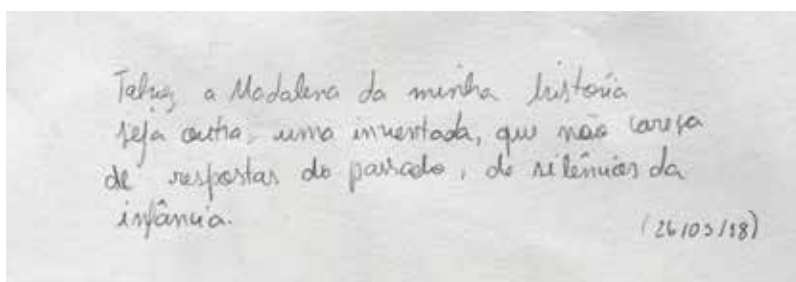 Talvez a Madalena da minha história
seja outra, uma inventada, que não careça
de respostas do passado, de silêncios da
infância.
(26/03/18)